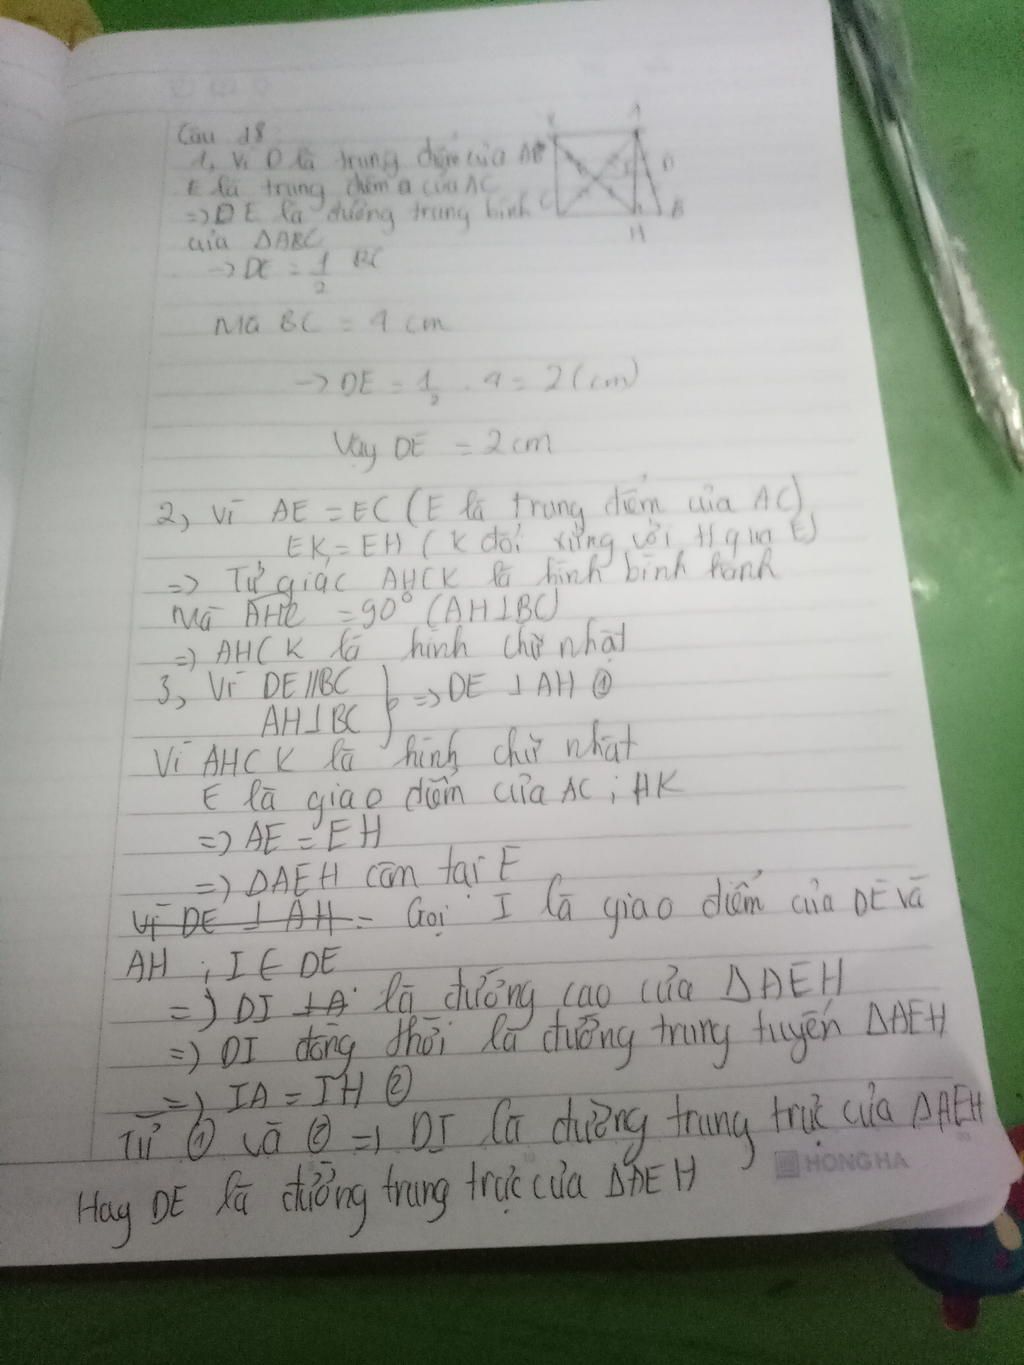 Câu 18
1, Vì D là trung điểm của AB
E là trung điểm a của AC
=> DE là đường trung bình
của ΔABC
-> DE = 1/2 BC
Mà BC = 4 cm
-> DE = 1/2 . 4 = 2 (cm)
Vậy DE = 2 cm
K A
E D
C B
H
2, Vì AE = EC (E là trung điểm của AC)
EK = EH (K đối xứng với H qua E)
=> Tứ giác AHCK là hình bình hành
Mà AHC = 90° (AH⊥BC)
=> AHCK là hình chữ nhật
3, Vì DE//BC } => DE ⊥ AH ①
AH⊥BC
Vì AHCK là hình chữ nhật
E là giao điểm của AC ; HK
=> AE = EH
=> ΔAEH cân tại E
Vì DE ⊥ AH = Gọi I là giao điểm của DE và
AH ; I ∈ DE
=> DI ⊥A là đường cao của ΔAEH
=> DI đồng thời là đường trung tuyến ΔAEH
=> IA = IH ②
Từ ① và ② => DI là đường trung trực của ΔAEH
HONG HA
Hay DE là đường trung trực của ΔAEH